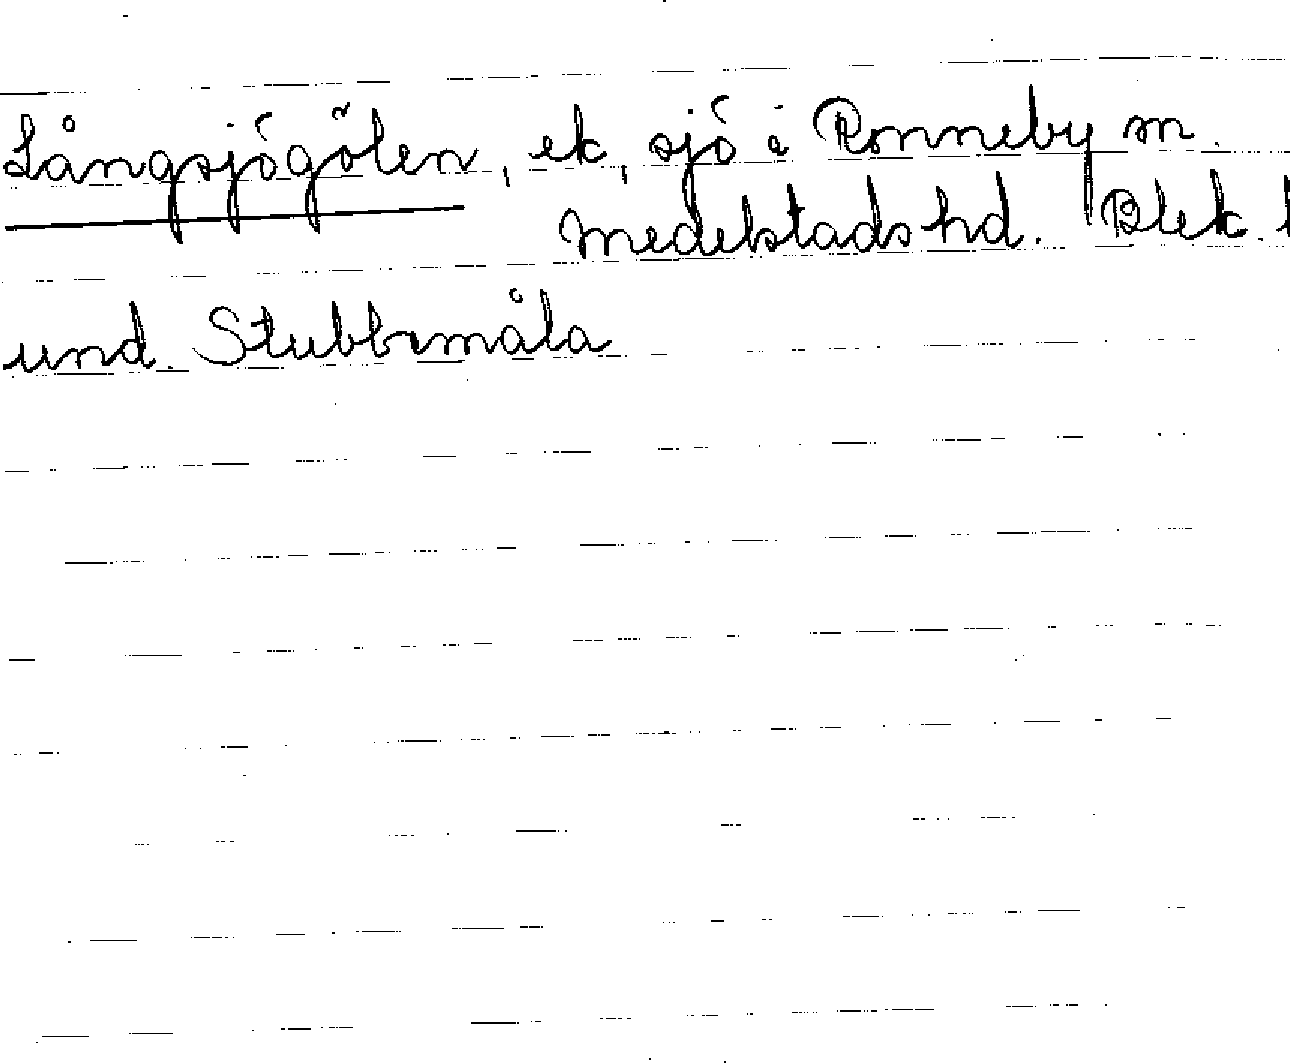 Långsjögölen, ek, sjö i Ronneby sn.
Medelstads hd. Blek. l
und. Stubbemåla